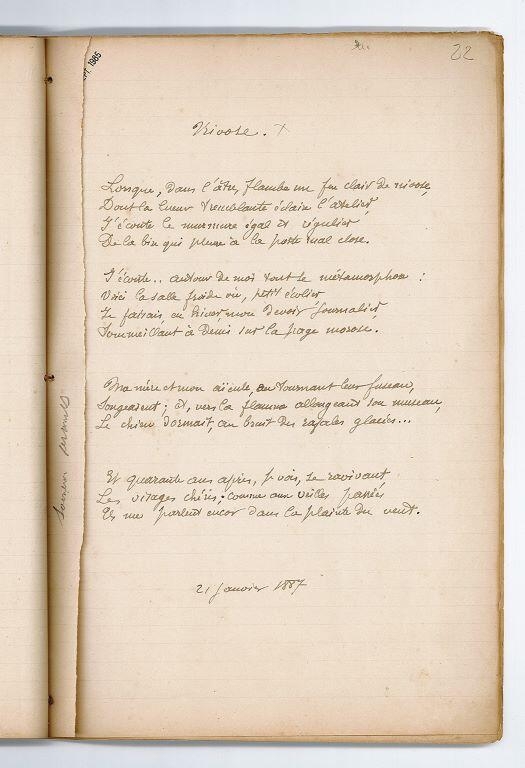 22
PT. 1985
Nivose. X
Lorsque, dans l'âtre, flambe un feu clair de nivose,
Dont la lueur tremblante éclaire l'atelier,
J'écoute le murmure égal et régulier
De la bise qui pleure à la porte mal close.
J'écoute.. autour de moi tout se métamorphose :
Voici la salle froide où, petit écolier
Je faisais, en hiver mon devoir journalier,
Sommeillant à demi sur la page morose.
Ma mère et mon aïeule, en tournant leur fuseau,
Songeaient ; et, vers la flamme allongeant son museau,
Le chien dormait, au bruit des rafales glacées...
Et quarante ans après, je vois, se ravivant
Les visages chéris ; comme aux veilles passées
Ils me parlent encor dans la plainte du vent.
21 janvier 1887